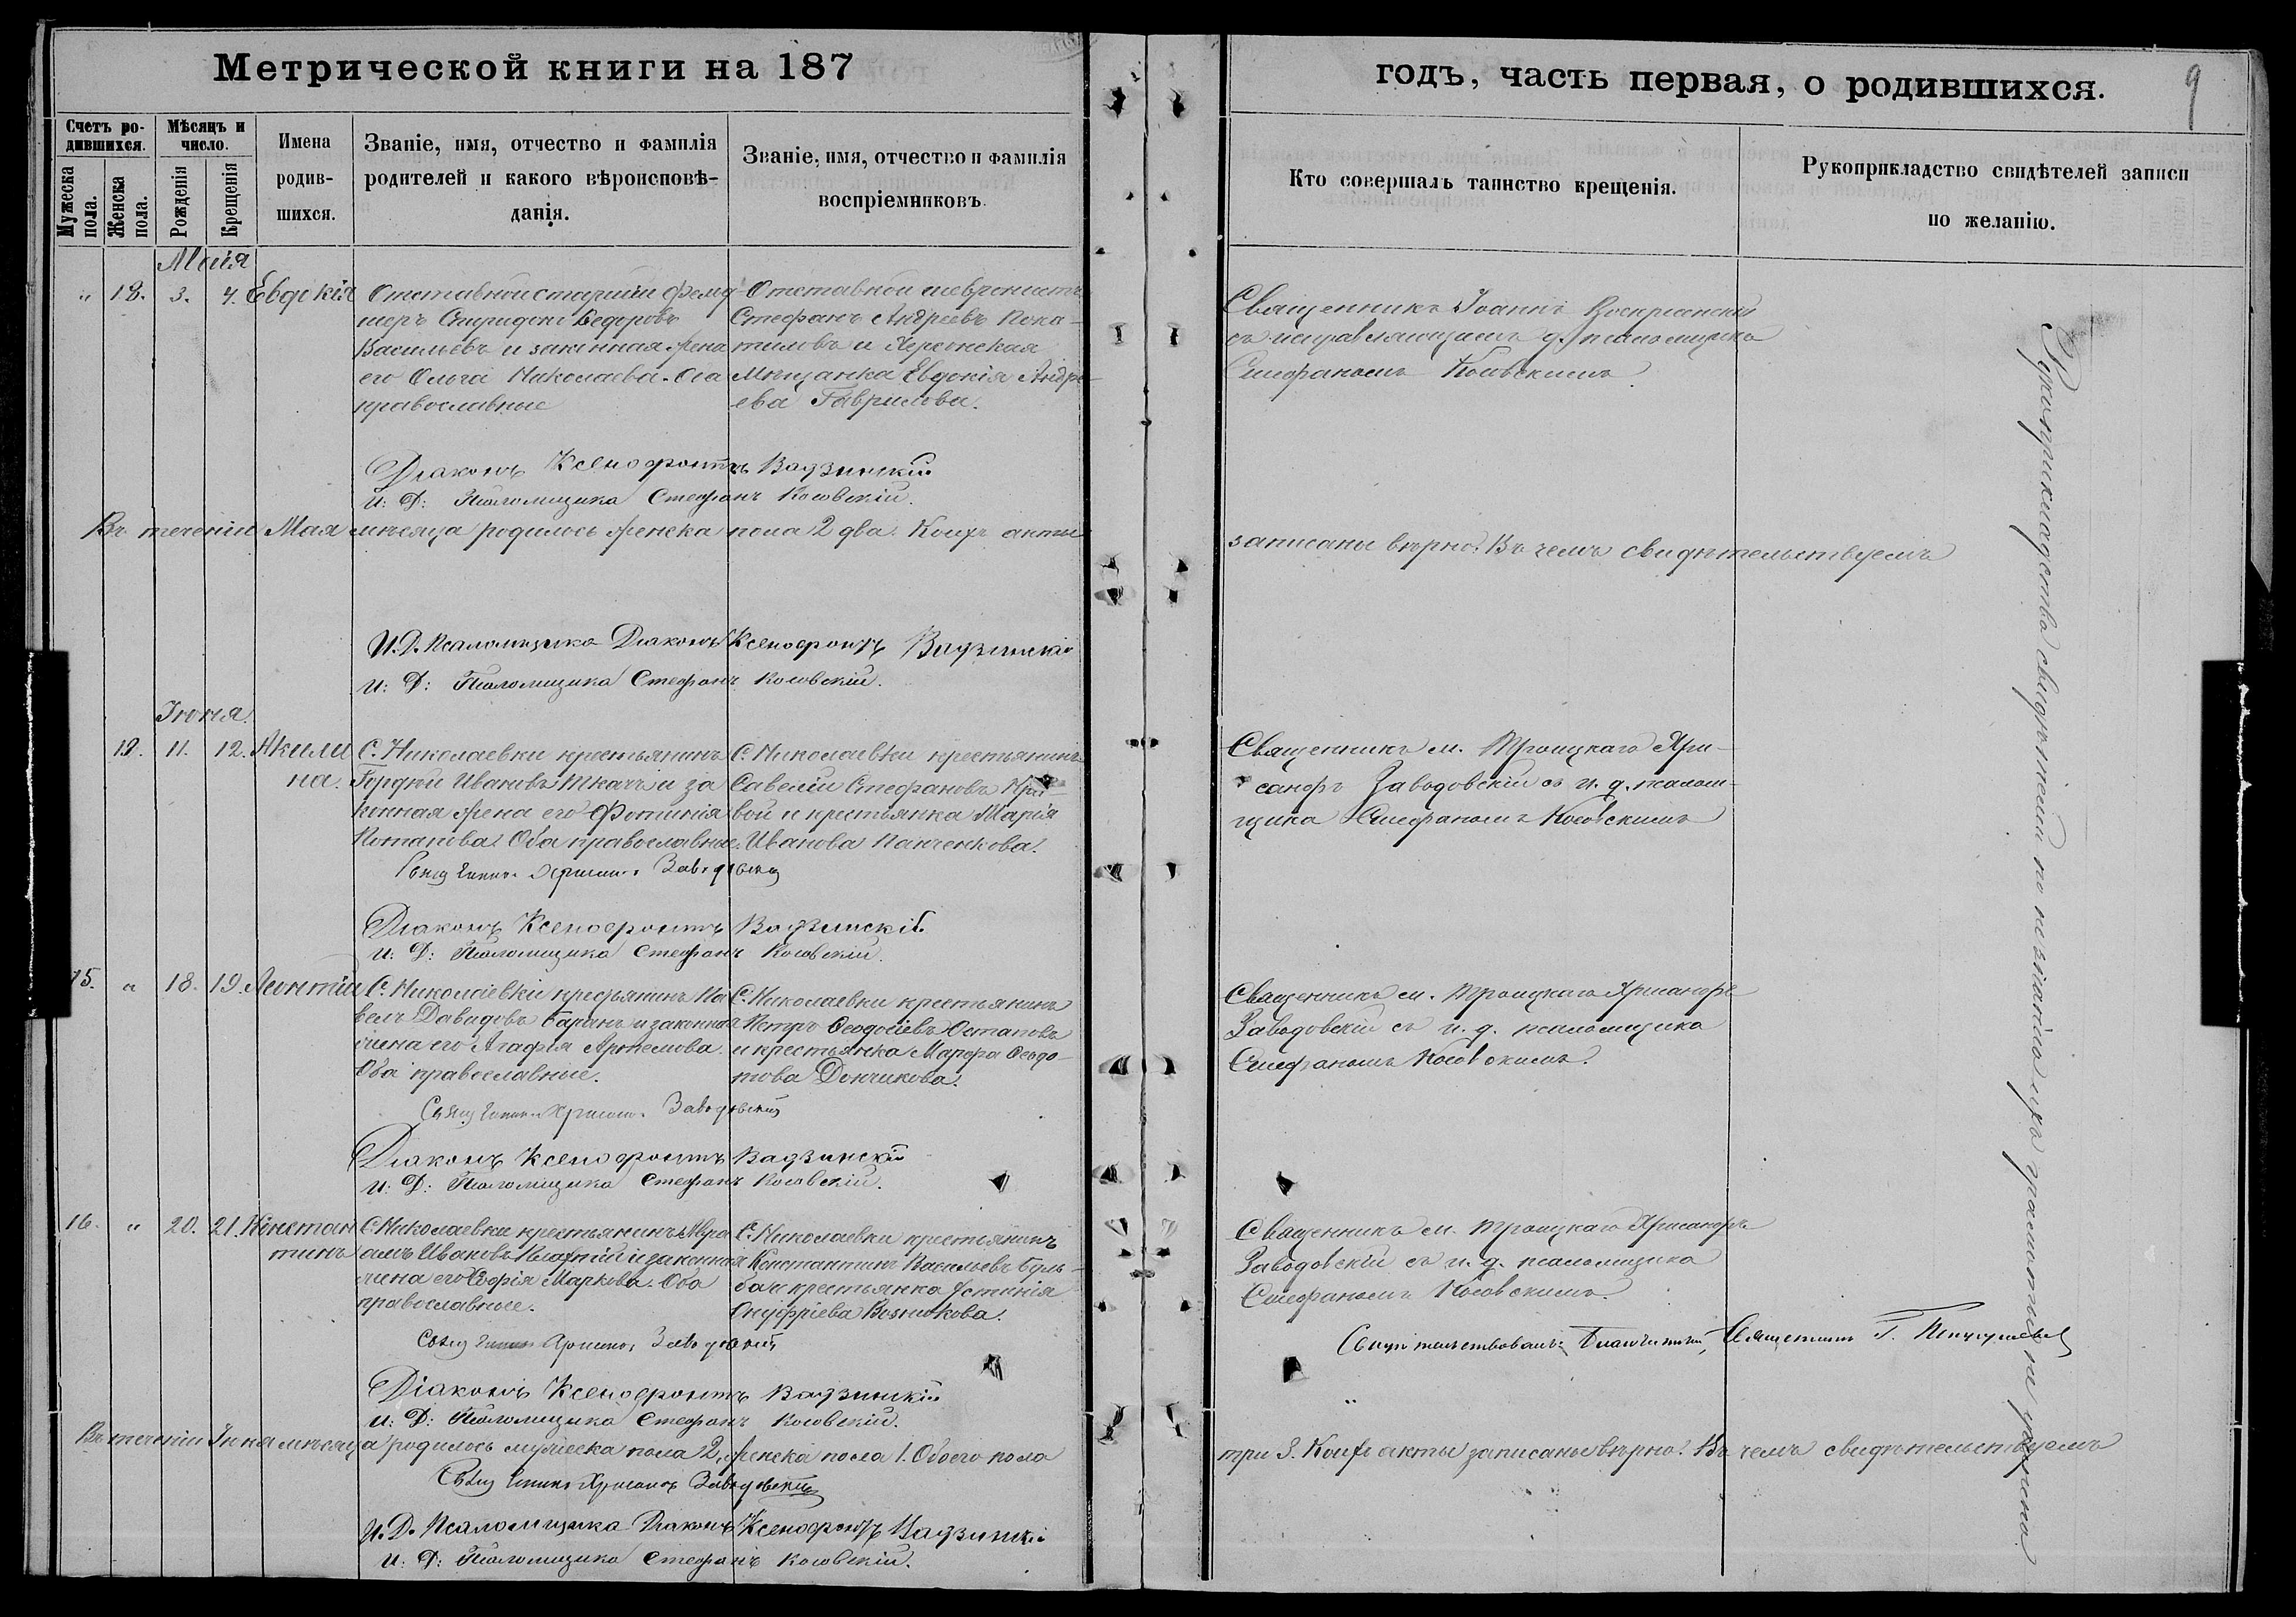 Метрической книги на 187
годъ, часть первая, о родившихся.
9
Счетъ ро-
дившихся.
Мѣсяцъ и
число.
Мужеска
пола.
Женска
пола.
Рожденія
Крещенія
Имена
родив-
шихся.
Званіе, имя, отчество и фамилія
родителей и какого вѣроисповѣ-
данія.
Званіе, имя, отчество и фамилія
воспріемниковъ.
Кто совершалъ таинство крещенія.
Рукоприкладство свидѣтелей записи
по желанію.
Маія
" 18. 3. 4. Евдокія
Отставной старшій фельд-
шеръ Спиридонъ Ѳедоровъ
Васильевъ и законная жена
его Ольга Николаева. Оба
православные
Отставной
Стефанъ Андреевъ
и Херсонская
Мѣщанка Евдокія Андре-
ева Гаврилова.
Священникъ Іоаннъ Воскресенскій
съ исправляющимъ д. псаломщика
Стефаномъ Косовскимъ
Діаконъ Ксенофонтъ Вадзинскій
И: Д: Псаломщика Стефанъ Косовскій.
Въ теченіи Мая мѣсяца родилось женска пола 2 два. Коихъ акты
записаны вѣрно. Въ чемъ свидѣтельствуемъ
И. Д. Псаломщика Діаконъ Ксенофонтъ Вадзинскій
И: Д: Псаломщика Стефанъ Косовскій.
Іюня.
19. 11. 12. Акили
на.
С. Николаевки крестьянинъ
Гордѣй Ивановъ Ткачъ и за
конная жена его Фотинія
Потапова. Оба православные.
С. Николаевки крестьянинъ
Савелій Стефановъ
вой и крестьянка Марія
Иванова Панченкова.
Священникъ м. Троицкаго Хри-
санфъ Заводовскій съ и. д. псалом-
щика Стефаномъ Косовскимъ
Заводовскій
Діаконъ Ксенофонтъ Вадзинскій.
И: Д: Псаломщика Стефанъ Косовскій.
15. " 18. 19. Леонтій
С. Николаевки крестьянинъ Па
велъ Давидовъ Баранъ и законная
жена его Агафія Артемова.
Оба православные.
С. Николаевки крестьянинъ
Петръ Ѳеодосіевъ Остаповъ
и крестьянка Марфа Ѳеодо-
това Дончикова.
Священникъ м. Троицкаго Хрисанфъ
Заводовскій съ и. д. псаломщика
Стефаномъ Косовскимъ.
Заводовскій
Діаконъ Ксенофонтъ Вадзинскій
И: Д: Псаломщика Стефанъ Косовскій.
16. " 20. 21. Констан
тинъ
С. Николаевки крестьянинъ Авра
амъ Ивановъ и законная
жена его Софія Маркова. Оба
православные.
С. Николаевки крестьянинъ
Константинъ Васильевъ Буль-
ба и крестьянка Устинія
Онуфріева Возникова.
Священникъ м. Троицкаго Хрисанфъ
Заводовскій съ и. д. псаломщика
Стефаномъ Косовскимъ.
Заводовскій
Свидѣтельствовалъ: Благочинный, Священникъ Г.
Діаконъ Ксенофонтъ Вадзинскій
И: Д: Псаломщика Стефанъ Косовскій.
Въ теченіи Іюня мѣсяца родилось мужеска пола 2, женска пола 1. Обоего пола
три 3. Коихъ акты записаны вѣрно. Въ чемъ свидѣтельствуемъ
Заводовскій
И. Д. Псаломщика Діаконъ Ксенофонтъ Вадзинскій
И: Д: Псаломщика Стефанъ Косовскій.
Рукоприкладства свидѣтелей по незнанію ихъ грамоты не учинено.